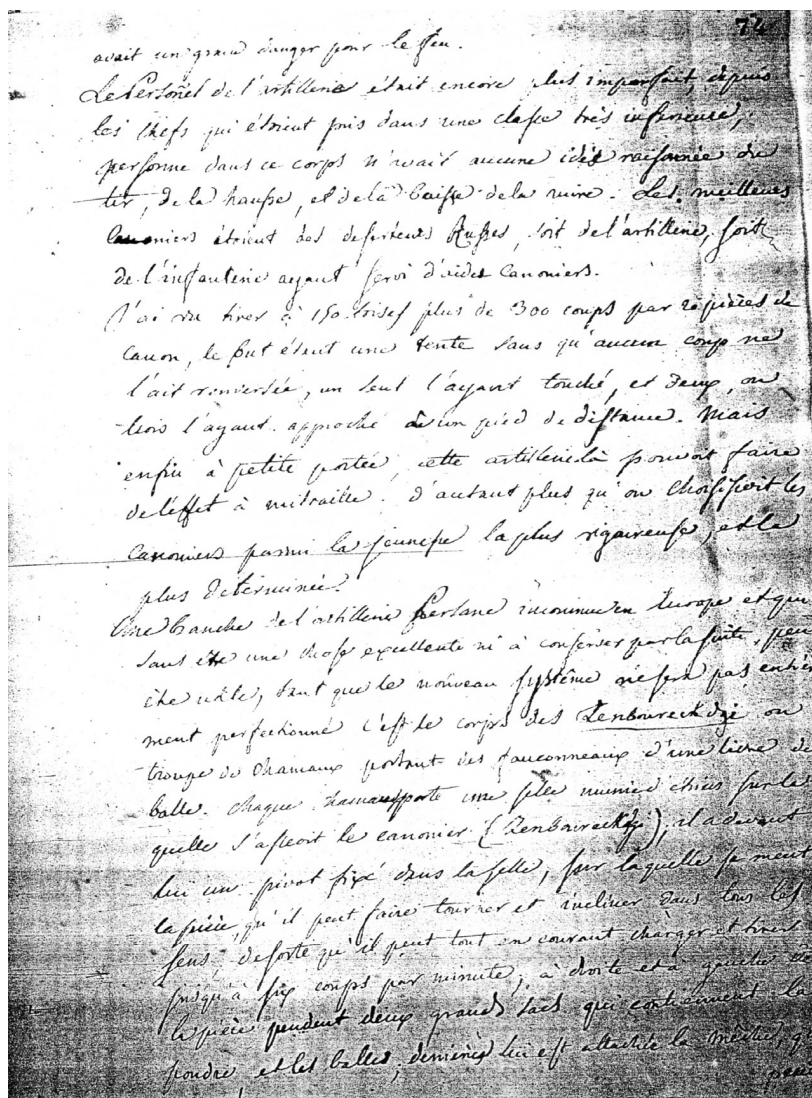 74
avait un grand danger pour le feu.
Le Personel de l'artillerie était encore plus imparfait, depuis
les chefs qui étoient pris dans une classe très inferieure,
personne dans ce corps n'avait aucune idée raisonnée du
tir, de la hausse, et de la baisse de la mire. Les meilleurs
Canoniers étoient des deserteurs Russes, soit de l'artillerie, soit
de l'infanterie ayant servi d'aides Canoniers.
J'ai vu tirer à 150 toises plus de 300 coups par 20 pièces de
Canon, le but étant une tente sans qu'aucun coup ne
l'ait renversée, un seul l'ayant touché, et deux, ou
trois l'ayant approché d'un pied de distance. Mais
enfin à petite portée, cette artillerie là pouvoit faire
de l'effet à mitraille. d'autant plus qu'on choisissoit les
Canoniers parmi la jeunesse la plus vigoureuse, et la
plus determinée.
Une branche de l'artillerie Persane inconnue en Europe et qui
sans être une chose excellente ni à conserver par la suite, peut
être utile, tant que le nouveau système ne sera pas entière
ment perfectionné c'est le corps des Zenboureckdgi ou
troupe de Chamaux portant des fauconneaux d'une livre de
balle. Chaque chamau porte une selle sur la
quelle s'asseoit le canonier (Zenboureckdgi), il a devant
lui un pivot fixé dans la selle, sur laquelle se meut
la pièce qu'il peut faire tourner et incliner dans tous les
sens, de sorte qu'il peut tout en courant charger et tirer
jusqu'à six coups par minute; à droite et à gauche de
la pièce pendent deux grands sacs qui contiennent la
poudre, et les balles, derrière lui est attachée la mèche,